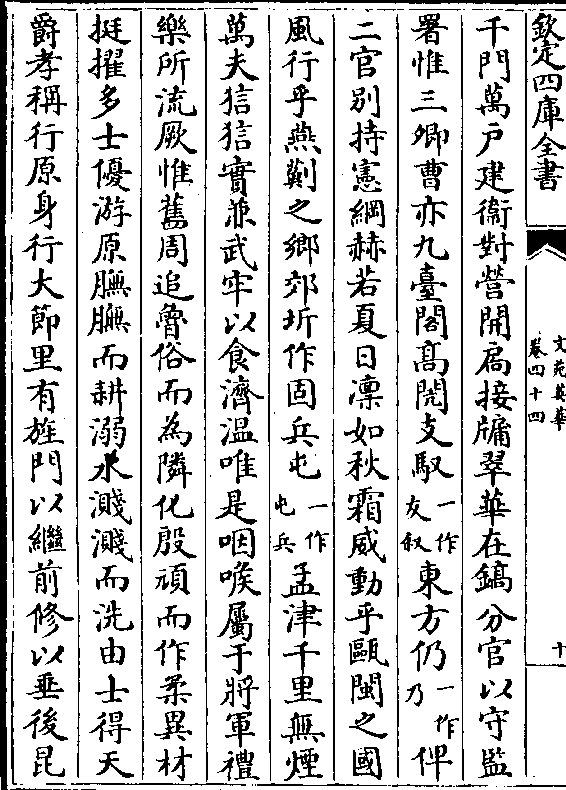 欽定四庫全書
文苑英華
卷四十四
十
千門萬户建衞對營開扄接牖翠華在鎬分官以守監
署惟三卿曹亦九臺閣髙閌支馭一作友叙東方仍一作乃俾
二官別持憲綱赫若夏日凛如秋霜威動乎甌閩之國
風行乎燕薊之鄉郊圻作固兵屯一作屯兵孟津千里無煙
萬夫狺狺實兼武牢以食濟温唯是咽喉屬于將軍禮
樂所流厥惟舊周追魯俗而為隣化殷頑而作柔異材
挺擢多士優游原膴膴而耕溺水濺濺而洗由士得天
爵孝稱行原身行大節里有旌門以繼前修以垂後昆